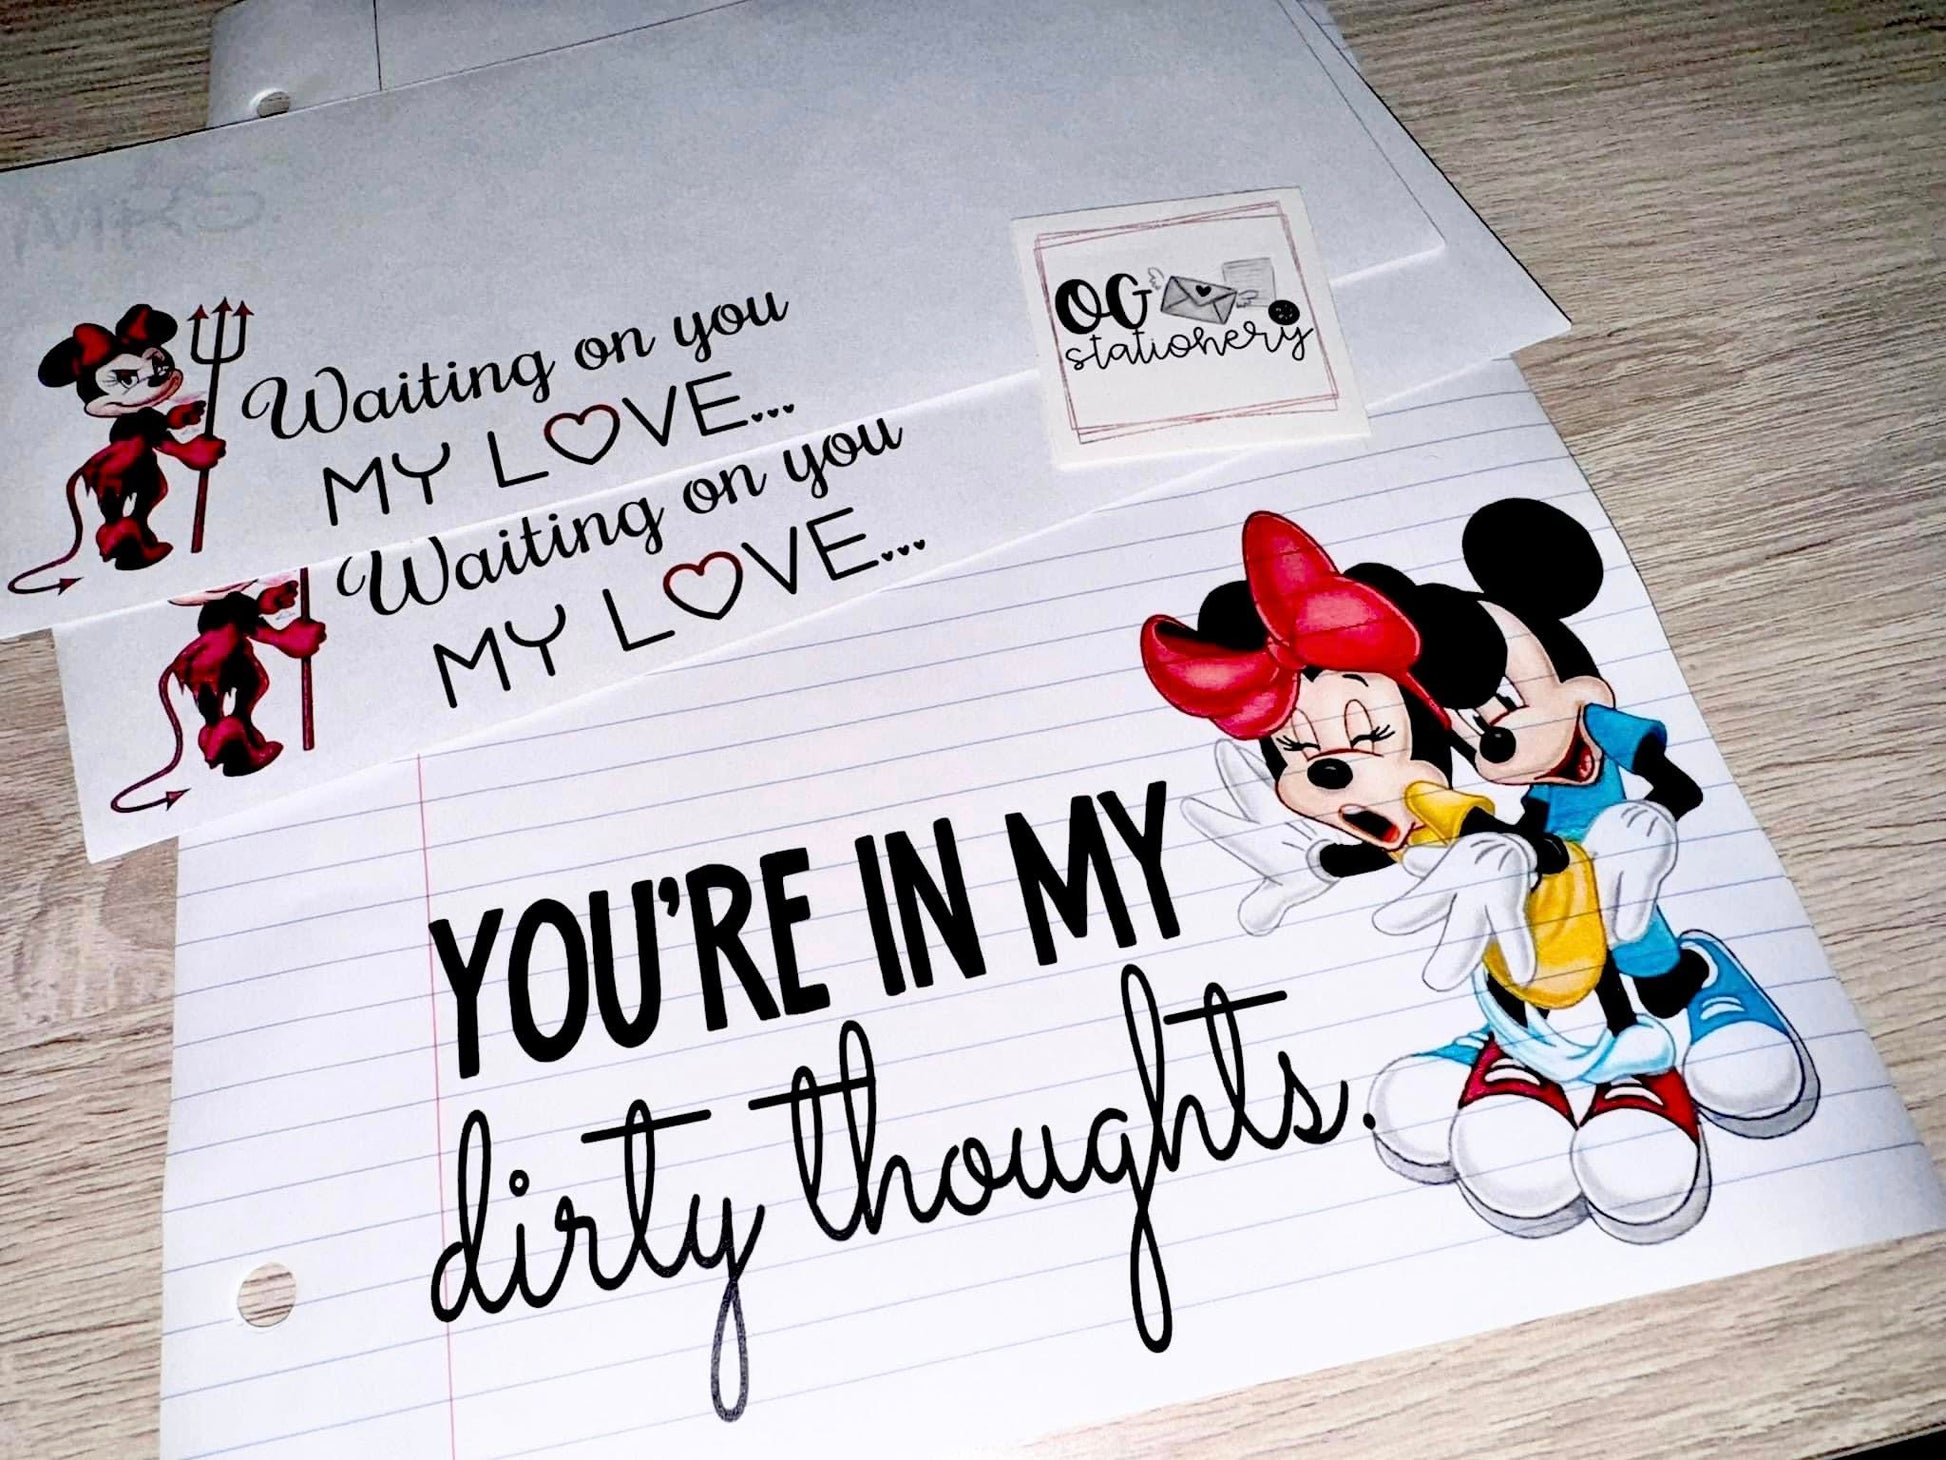 MRS.
Waiting on you
MY LOVE...
OG
stationery
Waiting on you
MY LOVE...
YOU'RE IN MY
dirty thoughts.